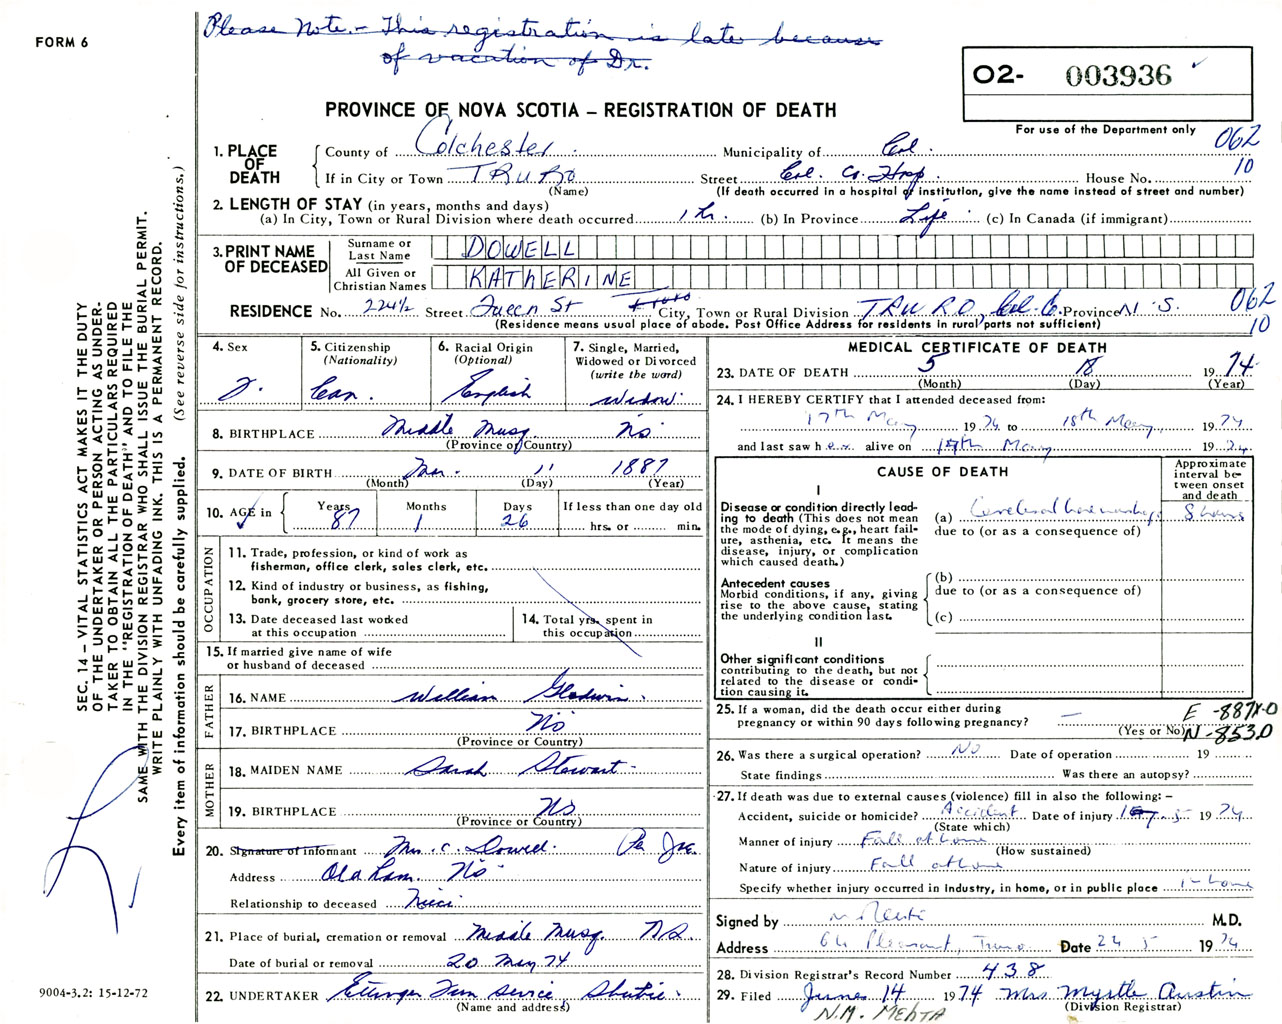 Please Note.- This registration is late because
of vacation of Dr.
FORM 6
O2- 003936
PROVINCE OF NOVA SCOTIA – REGISTRATION OF DEATH
For use of the Department only
062
10
1. PLACE OF DEATH
County of Colchester Municipality of Col.
If in City or Town TRURO Street Col. Co. Hosp. House No.
(Name) (If death occurred in a hospital or institution, give the name instead of street and number)
2. LENGTH OF STAY (in years, months and days)
(a) In City, Town or Rural Division where death occurred 1 hr. (b) In Province Life (c) In Canada (if immigrant)
3. PRINT NAME OF DECEASED
Surname or Last Name DOWELL
All Given or Christian Names KATHERINE
RESIDENCE No. 224½ Street Queen St Truro City, Town or Rural Division TRURO, Col. Co. Province N.S. 062
(Residence means usual place of abode. Post Office Address for residents in rural parts not sufficient) 10
4. Sex F.
5. Citizenship (Nationality) Can.
6. Racial Origin (Optional) English
7. Single, Married, Widowed or Divorced (write the word) Widow
8. BIRTHPLACE Middle Musq. NS
(Province or Country)
9. DATE OF BIRTH Mar. 11 1887
(Month) (Day) (Year)
10. AGE in Years 87 Months 1 Days 26 If less than one day old hrs. or min.
OCCUPATION
11. Trade, profession, or kind of work as fisherman, office clerk, sales clerk, etc.
12. Kind of industry or business, as fishing, bank, grocery store, etc.
13. Date deceased last worked at this occupation
14. Total yrs. spent in this occupation
15. If married give name of wife or husband of deceased
FATHER
16. NAME William Gladwin
17. BIRTHPLACE NS
(Province or Country)
MOTHER
18. MAIDEN NAME Sarah Stewart
19. BIRTHPLACE NS
(Province or Country)
20. Signature of informant Mrs. C. Dowell Per
Address Oldham NS
Relationship to deceased Niece
21. Place of burial, cremation or removal Middle Musq. N.S.
Date of burial or removal 20 May 74
22. UNDERTAKER Ettinger Fun Service Shubie
(Name and address)
MEDICAL CERTIFICATE OF DEATH
23. DATE OF DEATH 5 18 1974
(Month) (Day) (Year)
24. I HEREBY CERTIFY that I attended deceased from:
17th May 1974 to 18th May, 1974
and last saw her alive on 18th May 1974
CAUSE OF DEATH
Approximate interval between onset and death
I
Disease or condition directly leading to death (This does not mean the mode of dying, e.g., heart failure, asthenia, etc. It means the disease, injury, or complication which caused death.)
(a) Cerebral haemorrhage 8 hours
due to (or as a consequence of)
Antecedent causes
Morbid conditions, if any, giving rise to the above cause, stating the underlying condition last.
(b)
due to (or as a consequence of)
(c)
II
Other significant conditions contributing to the death, but not related to the disease or condition causing it.
25. If a woman, did the death occur either during pregnancy or within 90 days following pregnancy? —
(Yes or No)
E -887X-0
N-853.0
26. Was there a surgical operation? No Date of operation 19
State findings Was there an autopsy?
27. If death was due to external causes (violence) fill in also the following: –
Accident, suicide or homicide? Accident Date of injury 5 1974
(State which)
Manner of injury Fall at home
(How sustained)
Nature of injury Fall at home
Specify whether injury occurred in industry, in home, or in public place in home
Signed by M.D.
Address 64 Pleasant, Truro Date 24 5 1974
28. Division Registrar's Record Number 438
29. Filed June 14 1974 Mrs Myrtle Austin
(Division Registrar)
N.M. MEHTA
SEC. 14 – VITAL STATISTICS ACT MAKES IT THE DUTY
OF THE UNDERTAKER OR PERSON ACTING AS UNDER-
TAKER TO OBTAIN ALL THE PARTICULARS REQUIRED
IN THE "REGISTRATION OF DEATH" AND TO FILE THE
SAME WITH THE DIVISION REGISTRAR WHO SHALL ISSUE THE BURIAL PERMIT.
WRITE PLAINLY WITH UNFADING INK. THIS IS A PERMANENT RECORD.
Every item of information should be carefully supplied. (See reverse side for instructions.)
9004-3.2: 15-12-72